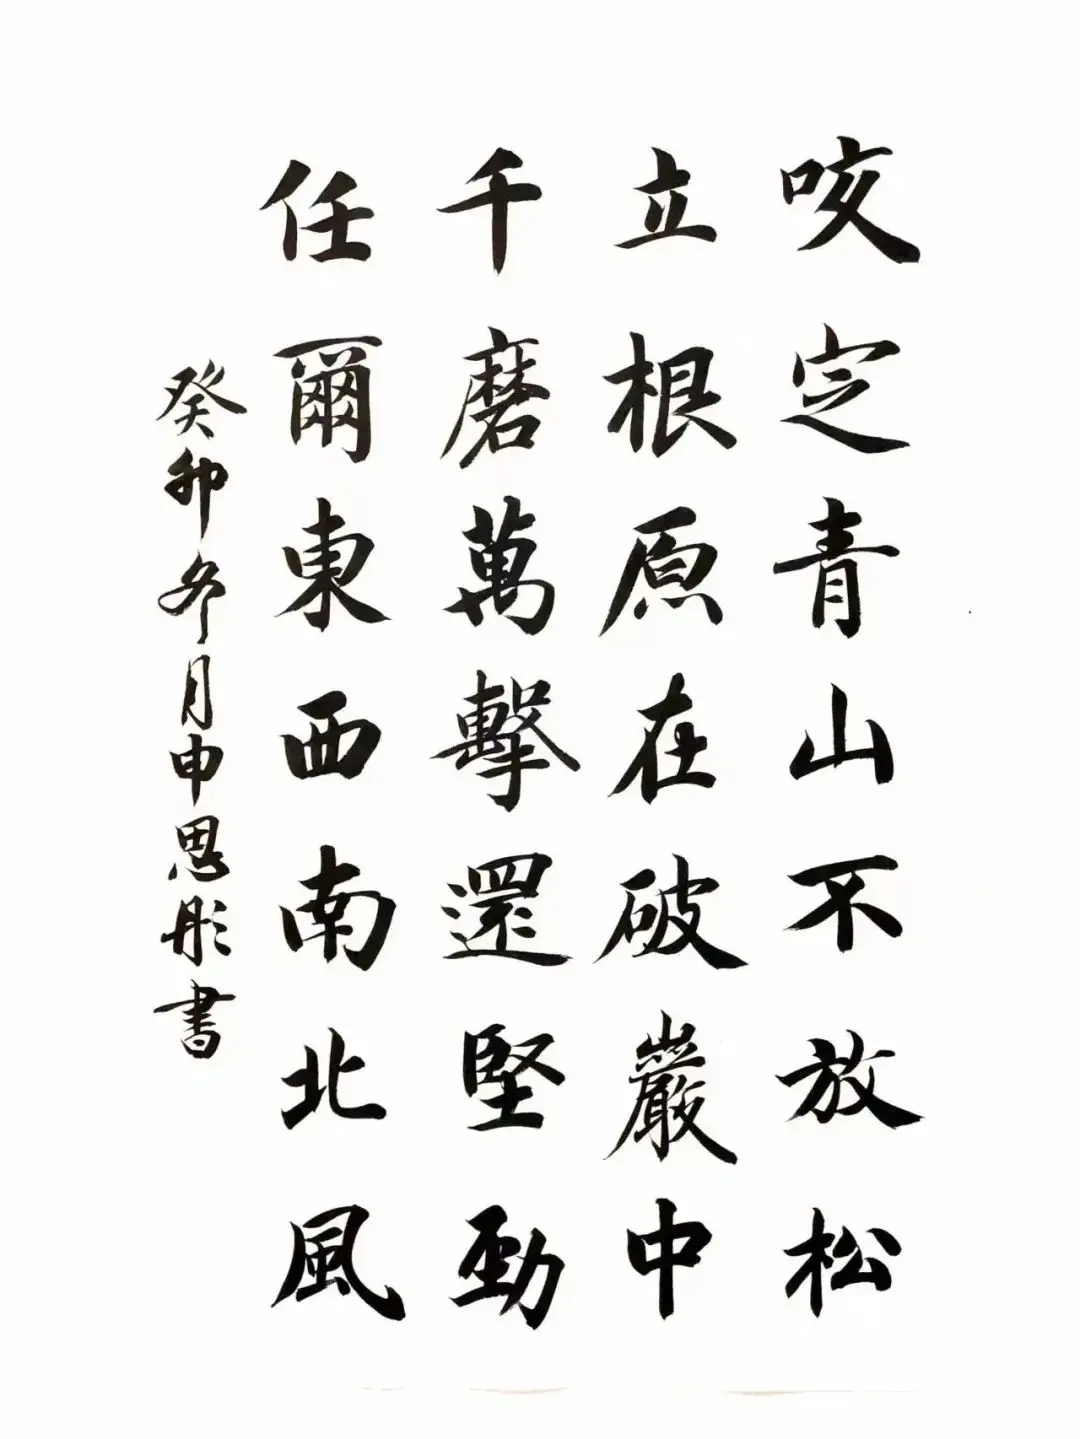 咬定青山不放松
立根原在破巖中
千磨萬擊還堅勁
任爾東西南北風
癸卯冬月申思彤書